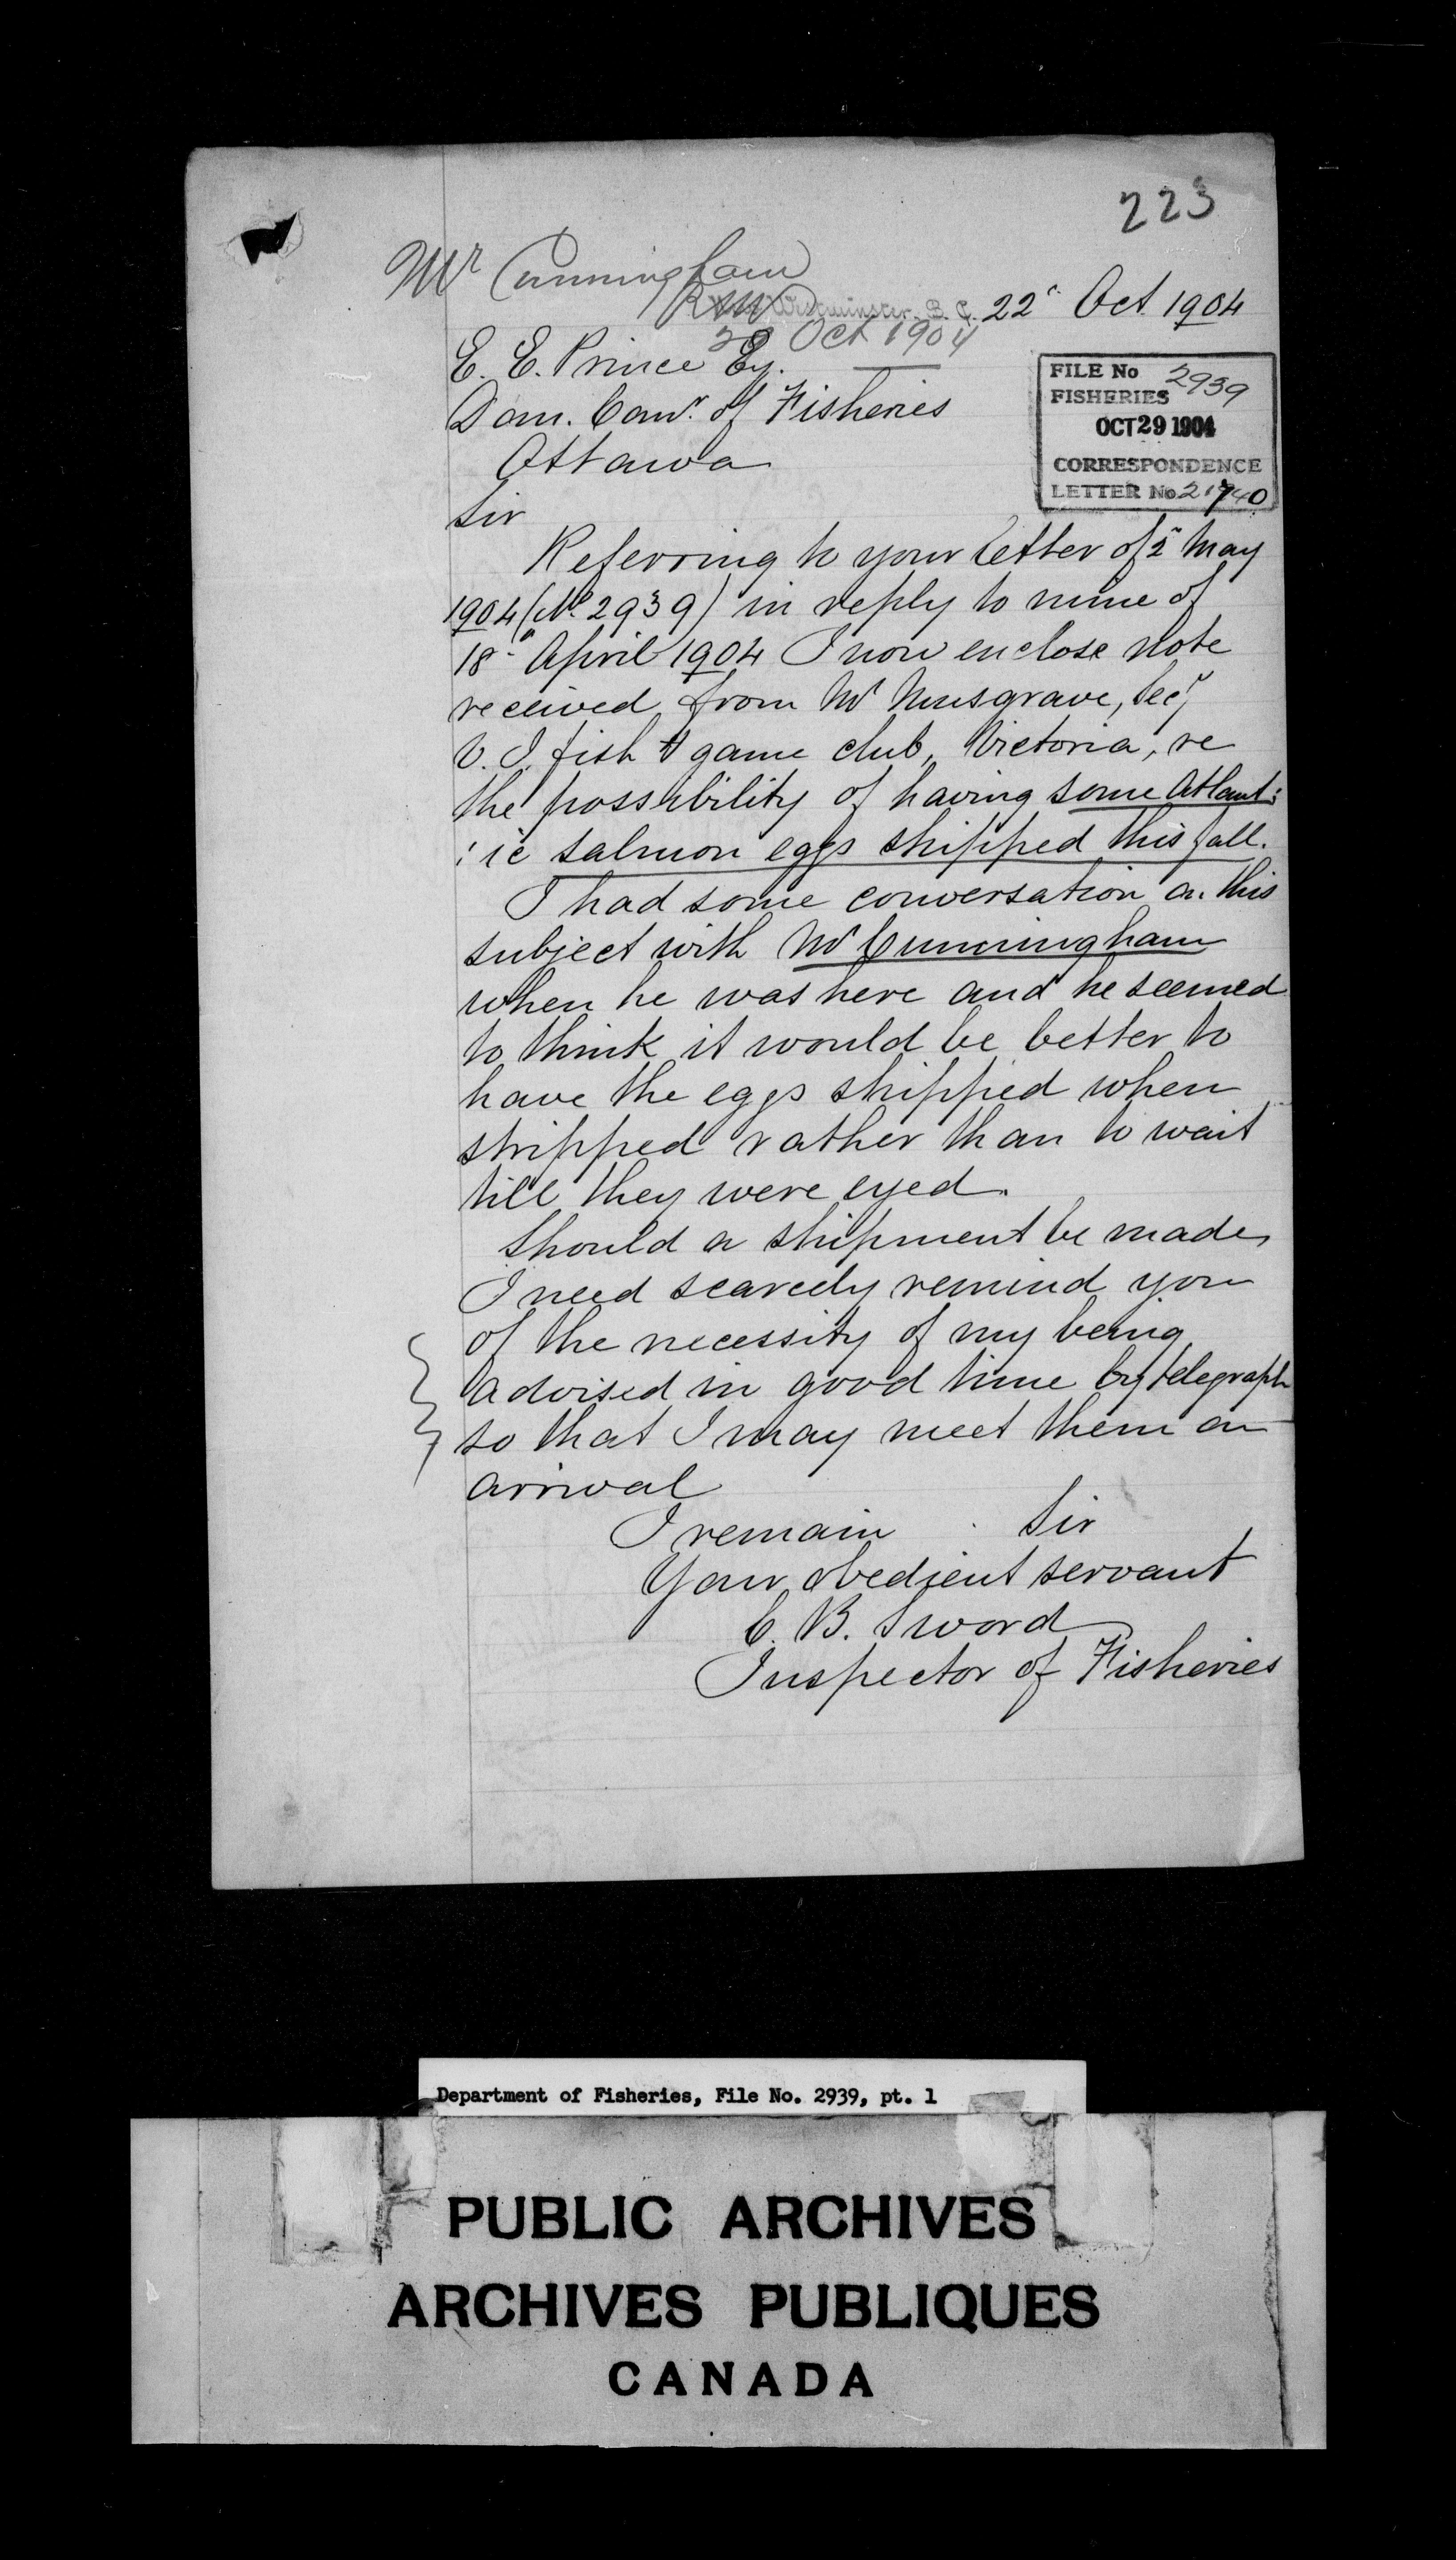 223
Mr Cunningham
Westminster, B. C. 22" Oct. 1904
Oct 1904
E. E. Prince Esq.
Dom. Comr. of Fisheries
Ottawa
FILE No 2939
FISHERIES
OCT 29 1904
CORRESPONDENCE
LETTER No 21740
Sir
Referring to your letter of 2" May
1904 (No. 2939) in reply to mine of
18" April 1904 I now enclose note
received from Mr Musgrave, Secy
V. I. fish & game club, Victoria, re
the possibility of having some Atlant:
:ic salmon eggs shipped this fall.
I had some conversation on this
subject with Mr Cunningham
when he was here and he seemed
to think it would be better to
have the eggs shipped when
stripped rather than to wait
till they were eyed.
Should a shipment be made,
I need scarcely remind you
of the necessity of my being
advised in good time by telegraph
so that I may meet them on
arrival
I remain Sir
Your obedient servant
C. B. Sword
Inspector of Fisheries
Department of Fisheries, File No. 2939, pt. 1
PUBLIC ARCHIVES
ARCHIVES PUBLIQUES
CANADA